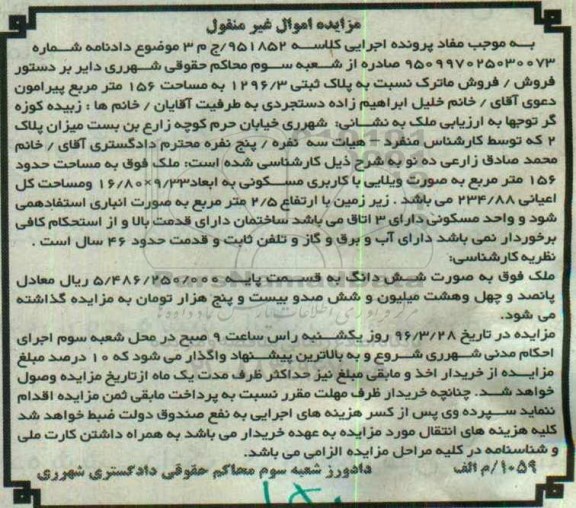 مزایده اموال غیر منقول
به موجب مفاد پرونده اجرایی کلاسه ۹۵۱۸۵۲/ج م ۳ موضوع دادنامه شماره
۹۵۰۹۹۷۰۲۵۰۳۰۰۷۳ صادره از شعبه سوم محاکم حقوقی شهرری دایر بر دستور
فروش / فروش ماترک نسبت به پلاک ثبتی ۱۲۹۶/۳ به مساحت ۱۵۶ متر مربع پیرامون
دعوی آقای / خانم خلیل ابراهیم زاده دستجردی به طرفیت آقایان / خانم ها : زبیده کوزه
گر توجها به ارزیابی ملک به نشانی: شهرری خیابان حرم کوچه زارع بن بست میزان پلاک
۲ که توسط کارشناس منفرد – هیات سه نفره / پنج نفره محترم دادگستری آقای / خانم
محمد صادق زارعی ده نو به شرح ذیل کارشناسی شده است: ملک فوق به مساحت حدود
۱۵۶ متر مربع به صورت ویلایی با کاربری مسکونی به ابعاد۹/۳۳×۱۶/۸۰ ومساحت کل
اعیانی ۲۳۴/۸۸ می باشد . زیر زمین با ارتفاع ۲/۵ متر مربع به صورت انباری استفادهمی
شود و واحد مسکونی دارای ۳ اتاق می باشد ساختمان دارای قدمت بالا و از استحکام کافی
برخوردار نمی باشد دارای آب و برق و گاز و تلفن ثابت و قدمت حدود ۴۶ سال است .
نظریه کارشناسی:
ملک فوق به صورت شش دانگ به قسمت پایه ۵/۴۸۶/۲۵۰/۰۰۰ ریال معادل
پانصد و چهل وهشت میلیون و شش صدو بیست و پنج هزار تومان به مزایده گذاشته
می شود.
مزایده در تاریخ ۹۶/۳/۲۸ روز یکشنبه راس ساعت ۹ صبح در محل شعبه سوم اجرای
احکام مدنی شهرری شروع و به بالاترین پیشنهاد واگذار می شود که ۱۰ درصد مبلغ
مزایده از خریدار اخذ و مابقی مبلغ نیز حداکثر ظرف مدت یک ماه ازتاریخ مزایده وصول
خواهد شد. چنانچه خریدار ظرف مهلت مقرر نسبت به پرداخت مابقی ثمن مزایده اقدام
ننماید سپرده وی پس از کسر هزینه های اجرایی به نفع صندوق دولت ضبط خواهد شد
کلیه هزینه های انتقال مورد مزایده به عهده خریدار می باشد به همراه داشتن کارت ملی
و شناسنامه در کلیه مراحل مزایده الزامی می باشد.
۱۰۵۹/م الف دادورز شعبه سوم محاکم حقوقی دادگستری شهرری